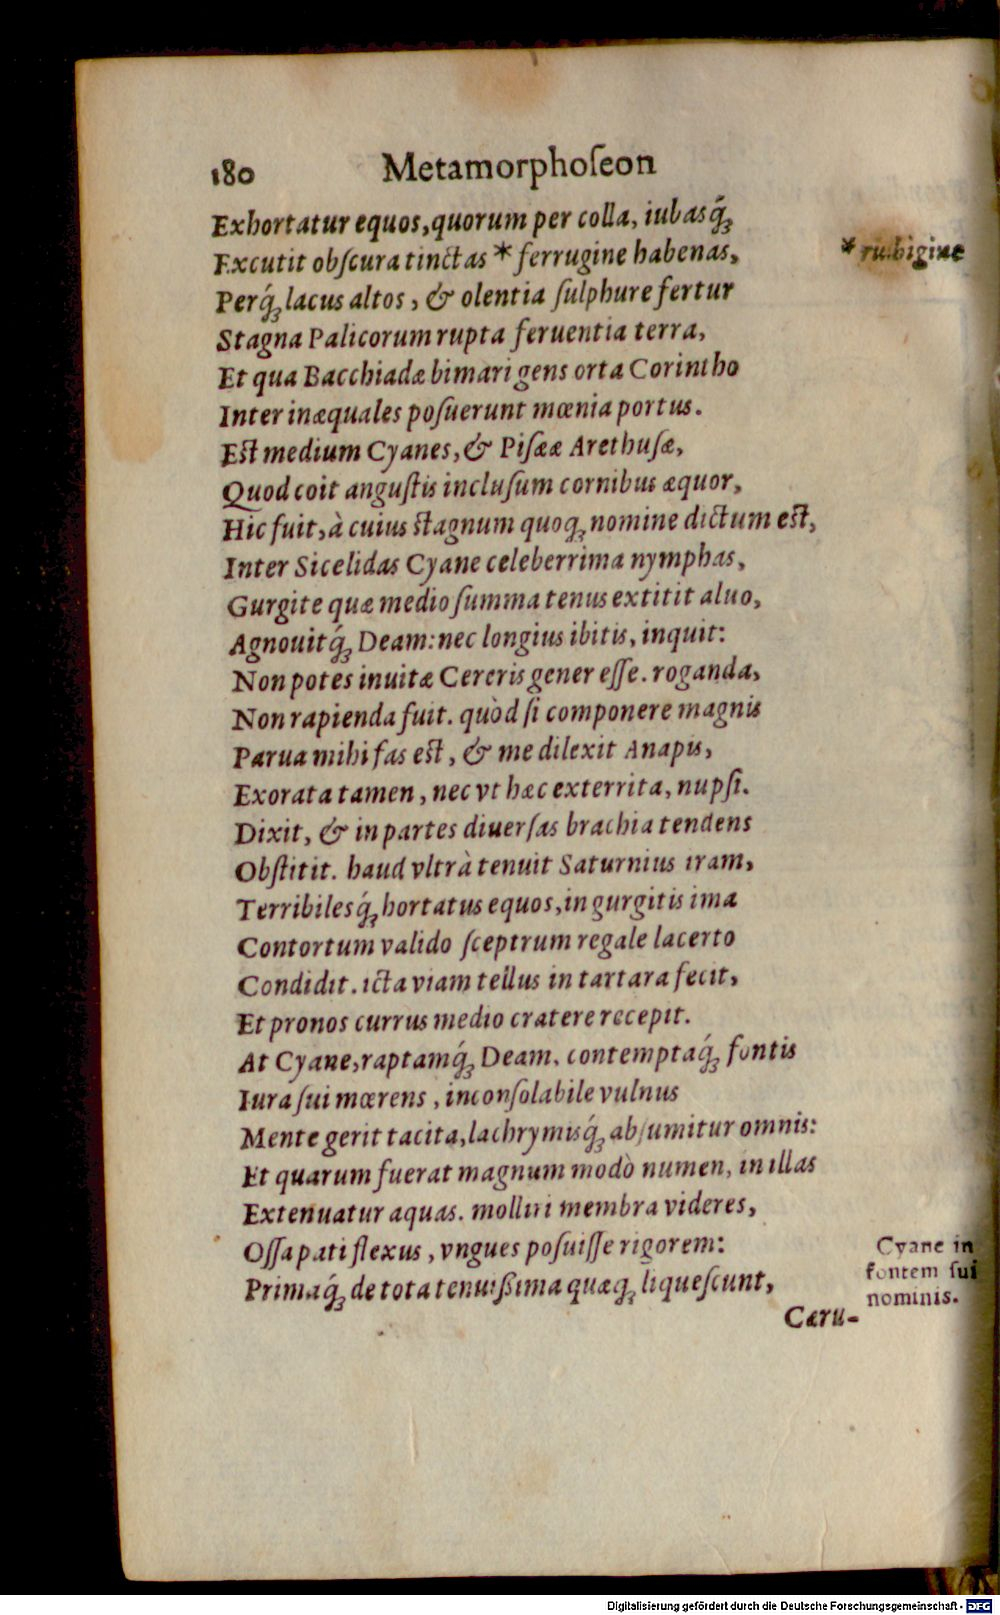 180 Metamorphoſeon
Exhortatur equos, quorum per colla, iubasq́ꝫ
Excutit obſcura tinctas * ferrugine habenas,
* rubigine
Perq́ꝫ lacus altos, & olentia ſulphure fertur
Stagna Palicorum rupta feruentia terra,
Et qua Bacchiadæ bimari gens orta Corintho
Inter inæquales poſuerunt mœnia portus.
Est medium Cyanes, & Piſææ Arethuſæ,
Quod coit anguſtis incluſum cornibus æquor,
Hic fuit, à cuius stagnum quoqꝫ nomine dictum est,
Inter Sicelidas Cyane celeberrima nymphas,
Gurgite quæ medio ſumma tenus extitit aluo,
Agnouitq́ꝫ Deam: nec longius ibitis, inquit:
Non potes inuitæ Cereris gener eſſe. roganda,
Non rapienda fuit. quòd ſi componere magnis
Parua mihi fas est, & me dilexit Anapis,
Exorata tamen, nec vt hæc exterrita, nupſi.
Dixit, & in partes diuerſas brachia tendens
Obſtitit. haud vltrà tenuit Saturnius iram,
Terribilesq́ꝫ hortatus equos, in gurgitis ima
Contortum valido ſceptrum regale lacerto
Condidit. icta viam tellus in tartara fecit,
Et pronos currus medio cratere recepit.
At Cyane, raptamq́ꝫ Deam, contemptaq́ꝫ fontis
Iura ſui mœrens, inconſolabile vulnus
Mente gerit tacita, lachrymisq́ꝫ abſumitur omnis:
Et quarum fuerat magnum modò numen, in illas
Extenuatur aquas. molliri membra videres,
Oſſa pati flexus, vngues poſuiſſe rigorem:
Primaq́ꝫ de tota tenuißima quæqꝫ liqueſcunt,
Cyane in
fontem ſui
nominis.
Cæru-
Digitalisierung gefördert durch die Deutsche Forschungsgemeinschaft - DFG